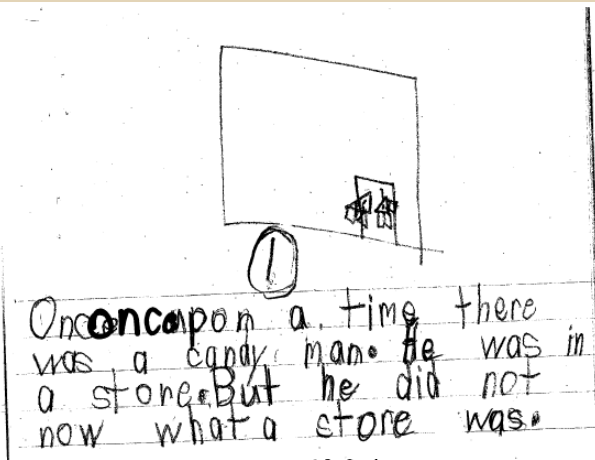 1
Onconcapon a time there
was a candy man. He was in
a store. But he did not
now what a store was.